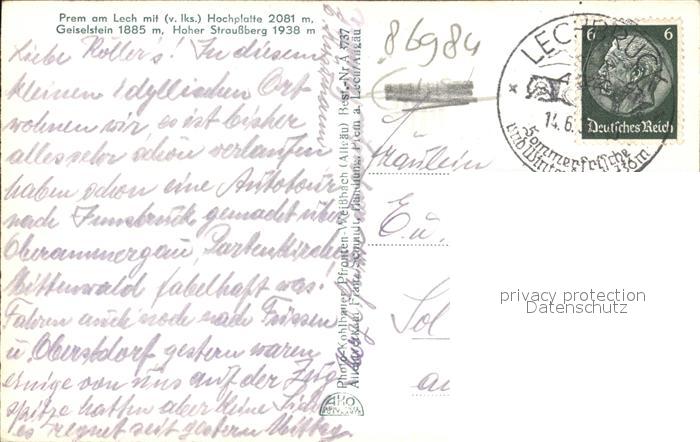 Prem am Lech mit (v. lks.) Hochplatte 2081 m,
Geiselstein 1885 m, Hoher Straußberg 1938 m
Liebe Roller's! In diesem
kleinen idyllischen Ort
wohnen wir, es ist bisher
alles sehr schön verlaufen
haben schon eine Autotour
nach Innsbruck gemacht über
Oberammergau, Partenkirchen
Mittenwald fabelhaft was!
Fahren auch noch nach Füssen
u. Oberstdorf gestern waren
einige von uns auf der Zug
spitze hatten aber keine Sicht
es regnet seit gestern Mittag.
Photo-Kohlbauer, Pfronten-Weißbach (Allgäu) Best.-Nr. A 5737
Prem a. Lech/Allgäu
86984
Fräulein
E. u.
Sol
au
LECHBRUCK
14.6.
Sommerfrische
und Winter
6 6
Deutsches Reich
privacy protection
Datenschutz